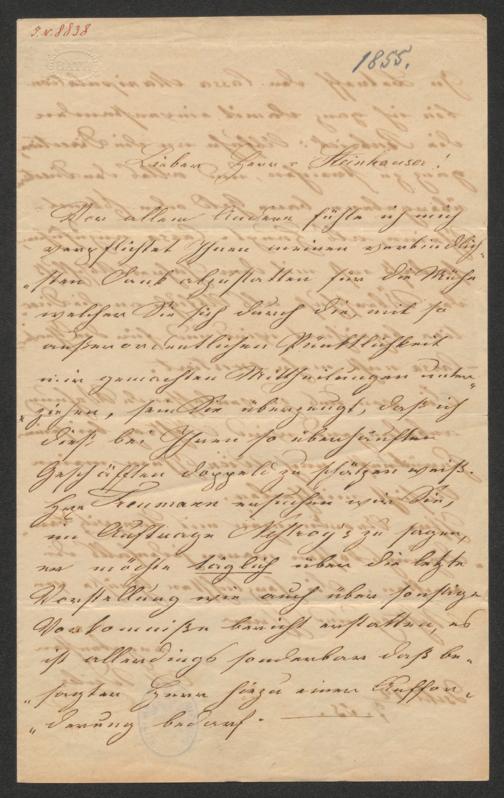 I.N.8838
BATH
1855.
Lieber Herr v Steinhauser!
Vor allem Andern fühle ich mich
verpflichtet Ihnen meinen verbindlich-
"sten Dank abzustatten für die Mühe
welcher Sie sich durch die mit so
außerordentlichen Pünktlichkeit
mir gemachten Mittheilungen unter-
"ziehen, seien Sie überzeugt, daß ich
dieß bei Ihren so überhäuften
Geschäften doppeld zu schätzen weiß.
Herr Treumann ersuchen wir Sie,
im Auftrage Nestroy's zu sagen,
er möchte täglich über die letzte
Vorstellung wie auch über sonstige
Vorkomniße bericht erstatten, es
ist allerdings sonderbar daß be-
"sagter Herr hiezu einer Auffor-
"derung bedarf.